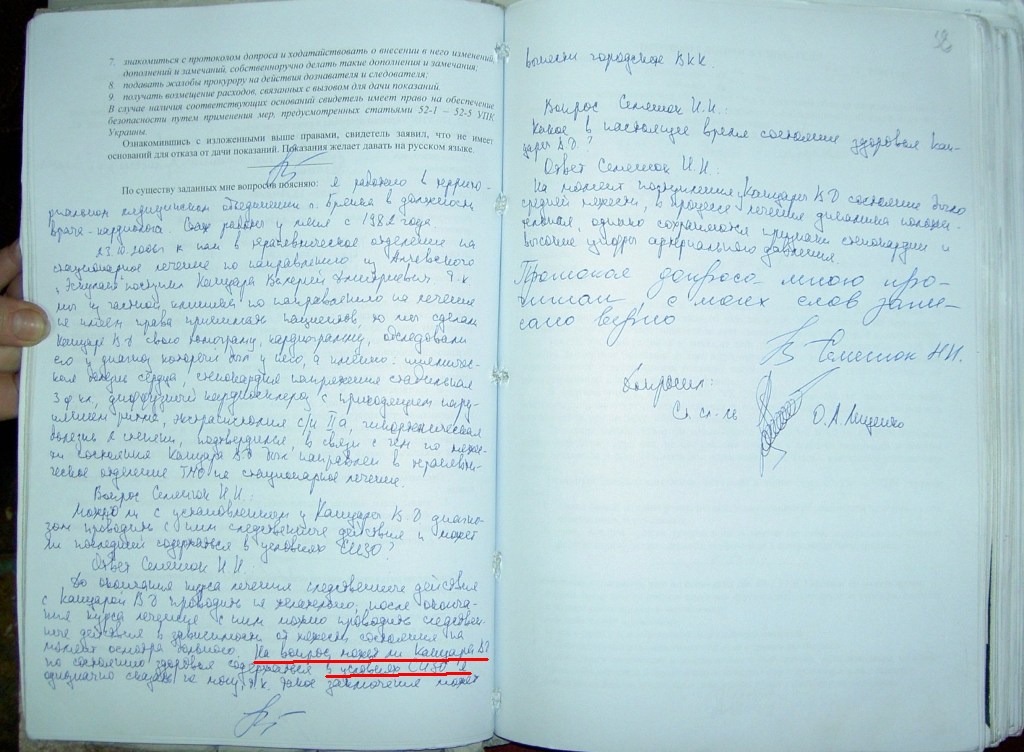 7. знакомиться с протоколом допроса и ходатайствовать о внесении в него изменений,
дополнений и замечаний, собственноручно делать такие дополнения и замечания;
8. подавать жалобы прокурору на действия дознавателя и следователя;
9. получать возмещение расходов, связанных с вызовом для дачи показаний.
В случае наличия соответствующих оснований свидетель имеет право на обеспечение
безопасности путем применения мер, предусмотренных статьями 52-1 – 52-5 УПК
Украины.
Ознакомившись с изложенными выше правами, свидетель заявил, что не имеет
оснований для отказа от дачи показаний. Показания желает давать на русском языке.
По существу заданных мне вопросов поясняю: я работаю в террито-
риальном медицинском объединении г. в должности
врача-кардиолога. Стаж работы у меня с 1982 года.
23.10.2006г к нам в терапевтическое отделение на
стационарное лечение по направлению из
поступил Кащара Валерий Дмитриевич т.к
мы у частной клиники по направлению на лечение
не имеем права принимать пациентов, то мы сделали
Кащаре ВД свою кардиограмму, обследовали
его и диагноз который был у него, а именно: ишемичес-
кая болезнь сердца, стенокардия напряжения стабильная
3 ф кл, диффузный кардиосклероз с приходящем нару-
шением ритма, экстрасистолия с/н IIа, гипертоническая
болезнь степени, подтвердился, в связи с чем по тяжес-
ти состояния Кащара ВД был направлен в терапевти-
ческое отделение ТМО на стационарное лечение.
Вопрос Семешок Н.И.:
Можно ли с установленным у Кащары ВД диагно-
зом проводить с ним следственные действия и может
ли последний содержаться в условиях СИЗО?
Ответ Семешок Н.И.
До окончания курса лечения следственные действия
с Кащарой ВД проводить не желательно, после оконча-
ния курса лечения с ним можно проводить следствен-
ные действия в зависимости от тяжести состояния на
момент осмотра больного. На вопрос может ли Кащара ВД
по состоянию здоровья содержаться в условиях СИЗО я
однозначно сказать не могу, т.к. такое заключение может
2
вынести городское ВКК.
Вопрос Семешок Н.И.:
Какое в настоящее время состояние здоровья Ка-
щары ВД?
Ответ Семешок Н.И.:
На момент поступления Кащары ВД состояние было
средней тяжести, в процессе лечения динамика положи-
тельная, однако сохраняются признаки стенокардии и
высокие цифры артериального давления.
Протокол допроса мною про-
читан, с моих слов запи-
сано верно
Семешок Н.И.
Допросил:
Ст. сл-ль О.А. Ищенко